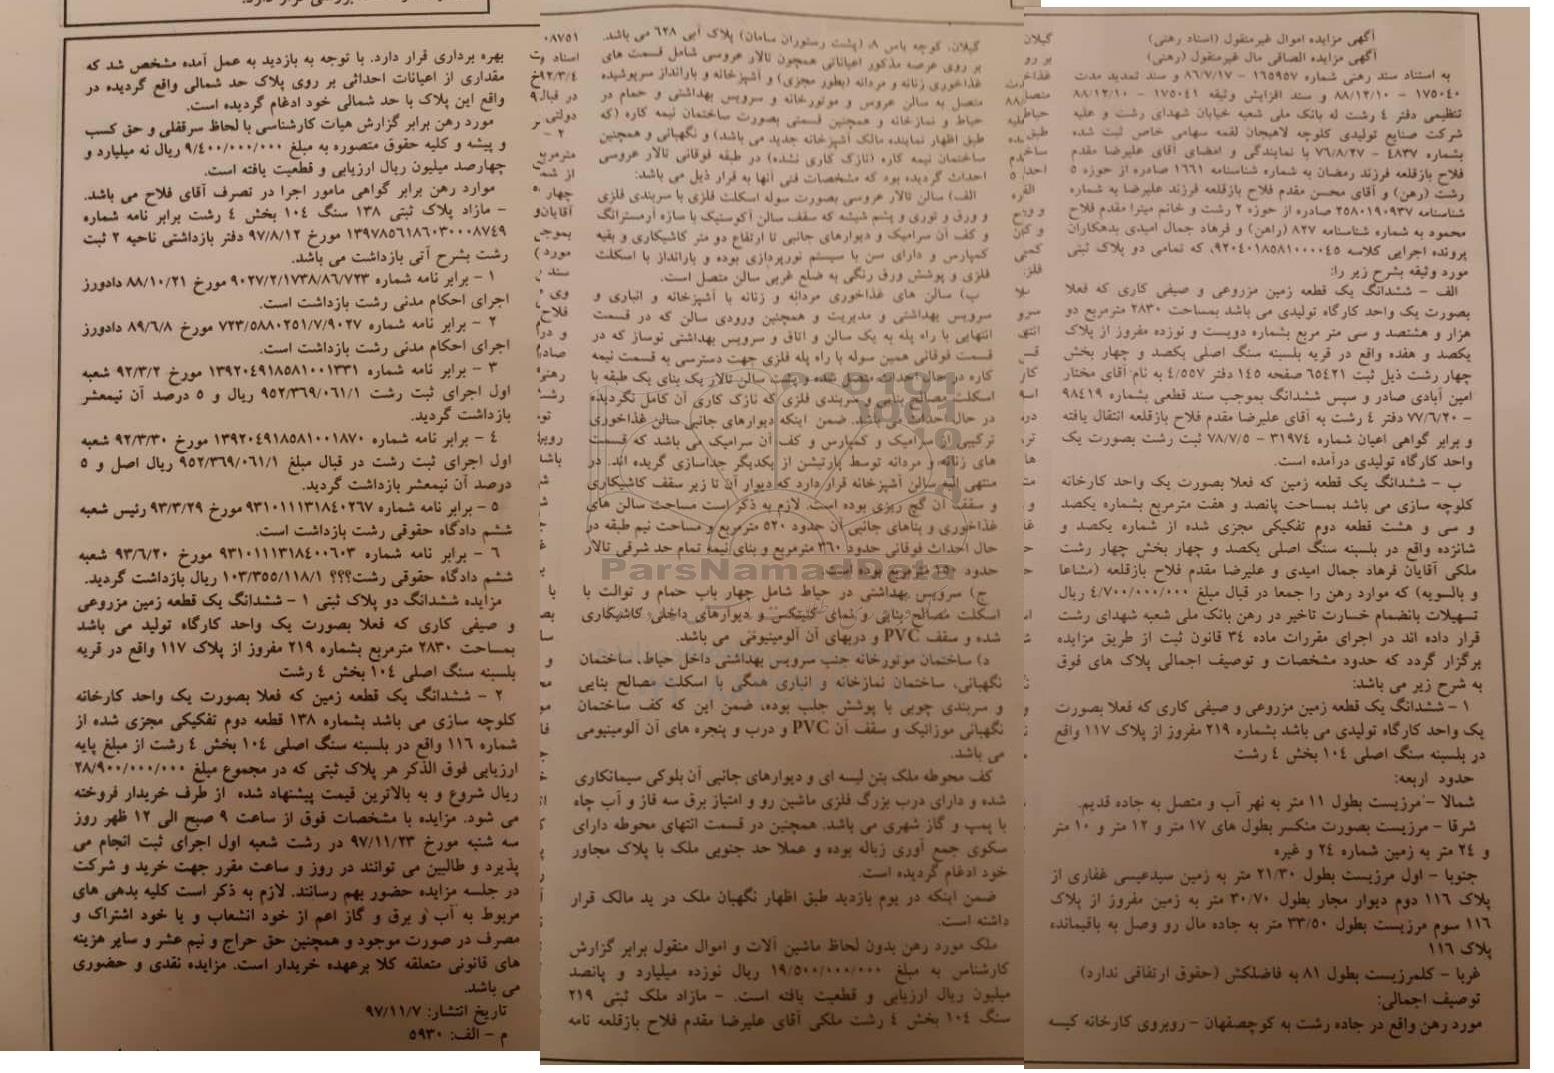 آگهی مزایده اموال غیرمنقول (اسناد رهنی)
آگهی مزایده الصاقی مال غیرمنقول (رهنی)
به استناد سند رهنی شماره ۱۶۵۹۵۷ - ۸۶/۷/۱۷ و سند تمدید مدت
۱۷۵۰۴۰ - ۸۸/۱۲/۱۰ و سند افزایش وثیقه ۱۷۵۰۴۱ - ۸۸/۱۲/۱۰
تنظیمی دفتر ٤ رشت له بانک ملی شعبه خیابان شهدای رشت و علیه
شرکت صنایع تولیدی کلوچه لاهیجان لقمه سهامی خاص ثبت شده
بشماره ۴۸۳۷ - ۷۶/۸/۲۷ با نمایندگی و امضای آقای علیرضا مقدم
فلاح بازقلعه فرزند رمضان به شماره شناسنامه ۱۶۶۱ صادره از حوزه ۵
رشت (رهن) و آقای محسن مقدم فلاح بازقلعه فرزند علیرضا به شماره
شناسنامه ۲۵۸۰۱۹۰۹۳۷ صادره از حوزه ۲ رشت و خانم میترا مقدم فلاح
محمود به شماره شناسنامه ۸۲۷ (راهن) و فرهاد جمال امیدی بدهکاران
پرونده اجرایی کلاسه ۹۲۰۴۰۱۸۵۸۱۰۰۰۰۴۵، که تمامی دو پلاک ثبتی
مورد وثیقه بشرح زیر را:
الف - ششدانگ یک قطعه زمین مزروعی و صیفی کاری که فعلا
بصورت یک واحد کارگاه تولیدی می باشد بمساحت ۲۸۳۰ مترمربع دو
هزار و هشتصد و سی متر مربع بشماره دویست و نوزده مفروز از پلاک
یکصد و هفده واقع در قریه بلسبنه سنگ اصلی یکصد و چهار بخش
چهار رشت ذیل ثبت ۶۵۴۲۱ صفحه ۱۴۵ دفتر ۴/۵۵۷ به نام آقای مختار
امین آبادی صادر و سپس ششدانگ بموجب سند قطعی بشماره ۹۸۴۱۹
- ۷۷/۶/۲۰ دفتر ٤ رشت به آقای علیرضا مقدم فلاح بازقلعه انتقال یافته
و برابر گواهی اعیان شماره ۳۱۹۷۴ - ۷۸/۷/۵ ثبت رشت بصورت یک
واحد کارگاه تولیدی درآمده است.
ب - ششدانگ یک قطعه زمین که فعلا بصورت یک واحد کارخانه
کلوچه سازی می باشد بمساحت پانصد و هفت مترمربع بشماره یکصد
و سی و هشت قطعه دوم تفکیکی مجزی شده از شماره یکصد و
شانزده واقع در بلسبنه سنگ اصلی یکصد و چهار بخش چهار رشت
ملکی آقایان فرهاد جمال امیدی و علیرضا مقدم فلاح بازقلعه (مشاعا
و بالسویه) که موارد رهن را جمعا در قبال مبلغ ۴/۷۰۰/۰۰۰/۰۰۰ ریال
تسهیلات بانضمام خسارت تاخیر در رهن بانک ملی شعبه شهدای رشت
قرار داده اند در اجرای مقررات ماده ۳۴ قانون ثبت از طریق مزایده
برگزار گردد که حدود مشخصات و توصیف اجمالی پلاک های فوق
به شرح زیر می باشد:
۱ - ششدانگ یک قطعه زمین مزروعی و صیفی کاری که فعلا بصورت
یک واحد کارگاه تولیدی می باشد بشماره ۲۱۹ مفروز از پلاک ۱۱۷ واقع
در بلسبنه سنگ اصلی ۱۰۴ بخش ٤ رشت
حدود اربعه:
شمالا - مرزیست بطول ۱۱ متر به نهر آب و متصل به جاده قدیم.
شرقا - مرزیست بصورت منکسر بطول های ۱۷ متر و ۱۲ متر و ۱۰ متر
و ۲۴ متر به زمین شماره ۲۴ و غیره
جنوبا - اول مرزیست بطول ۲۱/۳۰ متر به زمین سیدعیسی غفاری از
پلاک ۱۱۶ دوم دیوار مجار بطول ۳۰/۷۰ متر به زمین مفروز از پلاک
۱۱۶ سوم مرزیست بطول ۳۳/۵۰ متر به جاده مال رو وصل به باقیمانده
پلاک ۱۱۶
غربا - کلمرزیست بطول ۸۱ به فاضلکش (حقوق ارتفاقی ندارد)
توصیف اجمالی:
مورد رهن واقع در جاده رشت به کوچصفهان - روبروی کارخانه کیسه
گیلان، کوچه یاس ۸، (پشت رستوران سامان) پلاک آبی ۶۲۸ می باشد.
بر روی عرصه مذکور اعیاناتی همچون تالار عروسی شامل قسمت های
غذاخوری زنانه و مردانه (بطور مجزی) و آشپزخانه و بارانداز سرپوشیده
متصل به سالن عروس و موتورخانه و سرویس بهداشتی و حمام در
حیاط و نمازخانه و همچنین قسمتی بصورت ساختمان نیمه کاره (که
طبق اظهار نماینده مالک آشپزخانه جدید می باشد) و نگهبانی و همچنین
ساختمان نیمه کاره (نازک کاری نشده) در طبقه فوقانی تالار عروسی
احداث گردیده بود که مشخصات فنی آنها به قرار ذیل می باشد:
الف) سالن تالار عروسی بصورت سوله اسکلت فلزی با سربندی فلزی
و ورق و توری و پشم شیشه که سقف سالن آکوستیک با سازه آرمسترانگ
و کف آن سرامیک و دیوارهای جانبی تا ارتفاع دو متر کاشیکاری و بقیه
کمپارس و دارای سن با سیستم نورپردازی بوده و بارانداز با اسکلت
فلزی و پوشش ورق رنگی به ضلع غربی سالن متصل است.
ب) سالن های غذاخوری مردانه و زنانه با آشپزخانه و انباری و
سرویس بهداشتی و مدیریت و همچنین ورودی سالن که در قسمت
انتهایی با راه پله به یک سالن و اتاق و سرویس بهداشتی نوساز که در
قسمت فوقانی همین سوله با راه پله فلزی جهت دسترسی به قسمت نیمه
کاره در حال احداث متصل شده و پشت سالن تالار یک بنای یک طبقه با
اسکلت مصالح بنایی و سربندی فلزی که نازک کاری آن کامل نگردیده
در حال احداث می باشد. ضمن اینکه دیوارهای جانبی سالن غذاخوری
ترکیبی از سرامیک و کمپارس و کف آن سرامیک می باشد که قسمت
های زنانه و مردانه توسط پارتیشن از یکدیگر جداسازی گردیده اند. در
منتهی الیه سالن آشپزخانه قرار دارد که دیوار آن تا زیر سقف کاشیکاری
و سقف آن گچ ریزی بوده است. لازم به ذکر است مساحت سالن های
غذاخوری و بناهای جانبی آن حدود ۵۲۰ مترمربع و مساحت نیم طبقه در
حال احداث فوقانی حدود ۳۶۰ مترمربع و بنای نیمه تمام حد شرقی تالار
حدود ۱۵۰ مترمربع بوده است.
ج) سرویس بهداشتی در حیاط شامل چهار باب حمام و توالت با
اسکلت مصالح بنایی و نمای کنیتکس و دیوارهای داخلی کاشیکاری
شده و سقف PVC و دربهای آن آلومینیومی می باشد.
د) ساختمان موتورخانه جنب سرویس بهداشتی داخل حیاط، ساختمان
نگهبانی، ساختمان نمازخانه و انباری همگی با اسکلت مصالح بنایی
و سربندی چوبی با پوشش حلب بوده، ضمن این که کف ساختمان
نگهبانی موزائیک و سقف آن PVC و درب و پنجره های آن آلومینیومی
می باشد.
کف محوطه ملک بتن لیسه ای و دیوارهای جانبی آن بلوکی سیمانکاری
شده و دارای درب بزرگ فلزی ماشین رو و امتیاز برق سه فاز و آب چاه
با پمپ و گاز شهری می باشد. همچنین در قسمت انتهای محوطه دارای
سکوی جمع آوری زباله بوده و عملا حد جنوبی ملک با پلاک مجاور
خود ادغام گردیده است.
ضمن اینکه در یوم بازدید طبق اظهار نگهبان ملک در ید مالک قرار
داشته است.
ملک مورد رهن بدون لحاظ ماشین آلات و اموال منقول برابر گزارش
کارشناس به مبلغ ۱۹/۵۰۰/۰۰۰/۰۰۰ ریال نوزده میلیارد و پانصد
میلیون ریال ارزیابی و قطعیت یافته است. - مازاد ملک ثبتی ۲۱۹
سنگ ۱۰۴ بخش ٤ رشت ملکی آقای علیرضا مقدم فلاح بازقلعه نامه
بهره برداری قرار دارد. با توجه به بازدید به عمل آمده مشخص شد که
مقداری از اعیانات احداثی بر روی پلاک حد شمالی واقع گردیده در
واقع این پلاک با حد شمالی خود ادغام گردیده است.
مورد رهن برابر گزارش هیات کارشناسی با لحاظ سرقفلی و حق کسب
و پیشه و کلیه حقوق متصوره به مبلغ ۹/۴۰۰/۰۰۰/۰۰۰ ریال نه میلیارد و
چهارصد میلیون ریال ارزیابی و قطعیت یافته است.
موارد رهن برابر گواهی مامور اجرا در تصرف آقای فلاح می باشد.
- مازاد پلاک ثبتی ۱۳۸ سنگ ۱۰۴ بخش ٤ رشت برابر نامه شماره
۱۳۹۷۸۵۶۱۸۶۰۳۰۰۰۸۷۴۹ مورخ ۹۷/۸/۱۲ دفتر بازداشتی ناحیه ۲ ثبت
رشت بشرح آتی بازداشت می باشد.
۱ - برابر نامه شماره ۹۰۲۷/۲/۱۷۳۸/۸۶/۷۲۳ مورخ ۸۸/۱۰/۲۱ دادورز
اجرای احکام مدنی رشت بازداشت است.
۲ - برابر نامه شماره ۷۲۳/۵۸۸۰۲۵۱/۷/۹۰۲۷ مورخ ۸۹/۶/۸ دادورز
اجرای احکام مدنی رشت بازداشت است.
۳ - برابر نامه شماره ۱۳۹۲۰۴۹۱۸۵۸۱۰۰۱۳۳۱ مورخ ۹۲/۳/۲ شعبه
اول اجرای ثبت رشت ۹۵۲/۳۶۹/۰۶۱/۱ ریال و ۵ درصد آن نیمعشر
بازداشت گردید.
۴ - برابر نامه شماره ۱۳۹۲۰۴۹۱۸۵۸۱۰۰۱۸۷۰ مورخ ۹۲/۳/۳۰ شعبه
اول اجرای ثبت رشت در قبال مبلغ ۹۵۲/۳۶۹/۰۶۱/۱ ریال اصل و ۵
درصد آن نیمعشر بازداشت گردید.
۵ - برابر نامه شماره ۹۳۱۰۱۱۱۳۱۸۴۰۲۶۷ مورخ ۹۳/۳/۲۹ رئیس شعبه
ششم دادگاه حقوقی رشت بازداشت است.
۶ - برابر نامه شماره ۹۳۱۰۱۱۱۳۱۸۴۰۰۶۰۳ مورخ ۹۳/۶/۲۰ شعبه
ششم دادگاه حقوقی رشت؟؟؟ ۱۰۳/۳۵۵/۱۱۸/۱ ریال بازداشت گردید.
مزایده ششدانگ دو پلاک ثبتی ۱ - ششدانگ یک قطعه زمین مزروعی
و صیفی کاری که فعلا بصورت یک واحد کارگاه تولید می باشد
بمساحت ۲۸۳۰ مترمربع بشماره ۲۱۹ مفروز از پلاک ۱۱۷ واقع در قریه
بلسبنه سنگ اصلی ۱۰۴ بخش ٤ رشت
۲ - ششدانگ یک قطعه زمین که فعلا بصورت یک واحد کارخانه
کلوچه سازی می باشد بشماره ۱۳۸ قطعه دوم تفکیکی مجزی شده از
شماره ۱۱۶ واقع در بلسبنه سنگ اصلی ۱۰۴ بخش ٤ رشت از مبلغ پایه
ارزیابی فوق الذکر هر پلاک ثبتی که در مجموع مبلغ ۲۸/۹۰۰/۰۰۰/۰۰۰
ریال شروع و به بالاترین قیمت پیشنهاد شده از طرف خریدار فروخته
می شود. مزایده با مشخصات فوق از ساعت ۹ صبح الی ۱۲ ظهر روز
سه شنبه مورخ ۹۷/۱۱/۲۳ در رشت شعبه اول اجرای ثبت انجام می
پذیرد و طالبین می توانند در روز و ساعت مقرر جهت خرید و شرکت
در جلسه مزایده حضور بهم رسانند. لازم به ذکر است کلیه بدهی های
مربوط به آب و برق و گاز اعم از خود انشعاب و یا خود اشتراک و
مصرف در صورت موجود و همچنین حق حراج و نیم عشر و سایر هزینه
های قانونی متعلقه کلا برعهده خریدار است. مزایده نقدی و حضوری
می باشد.
تاریخ انتشار: ۹۷/۱۱/۷
م - الف: ۵۹۳۰
ParsNamadData